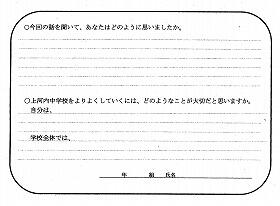 ○今回の話を聞いて、あなたはどのように思いましたか。
○上河内中学校をよりよくしていくには、どのようなことが大切だと思いますか。
自分は、
学校全体では、
年 組 氏名